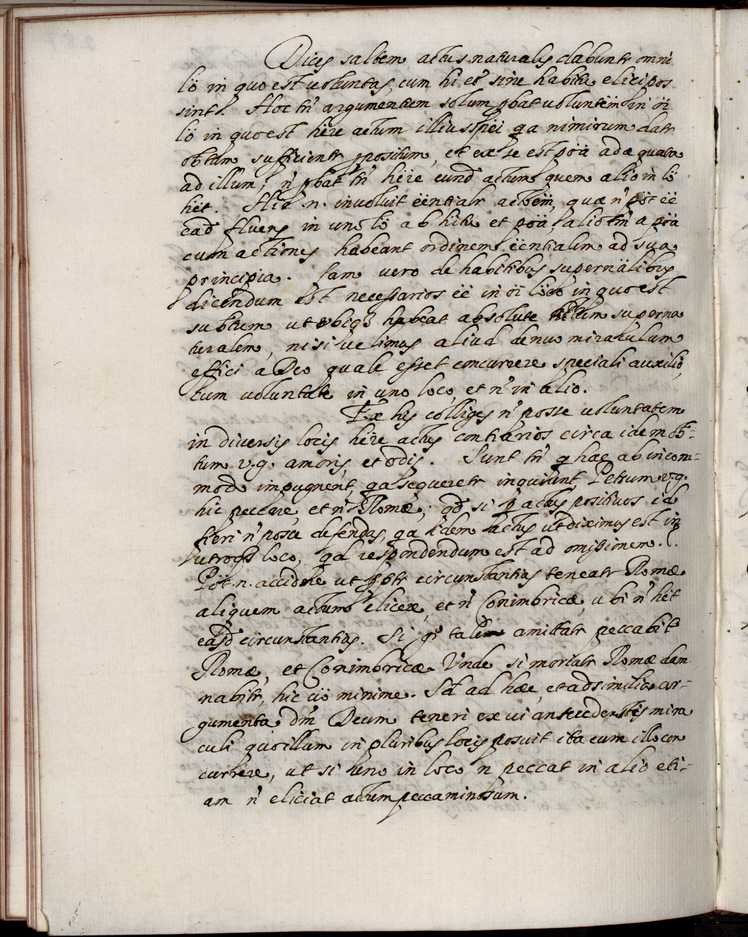 Dices saltem actus naturalis dabuntr omni
lō in quo est voluntas, cum hi et sine habitu elici pos
sint. Hoc tn̄ argumentum solum pbat voluntēm in oi
lō in quo est hēre actum illius spēi qa nimirum datr
obtum sufficientr ppositum, et ex se est poā adæquata
ad illum, n̄ pbat tn̄ hēre eund actum quem alio in lō
hēt. Hic n. involuit ēentialr actōem, quæ n̄ pōt ēē
eād fluens in uno lō ab hitu et poā, alio tn̄ a poā
cum actiones habeant ordinem ēentialem ad sua
principia. Iam vero de habitibus supernālibus
dicendum est necessarios ēē in oi loco in quo est
subtum ut ubiq; habeat absolute actum superna
turalem, nisi velimus aliud denuo mirakulum
effici a Deo quale esset concurrere speciali auxilio,
cum voluntate in uno loco, et n̄ in alio.
Ex his colliges n̄ posse voluntatem
in diversis locis hēre actus contrarios circa idem ob-
tum v.g. amoris, et odij. Sunt tn̄ q hæc ab incom-
modo impugnent, qa sequeretr inquiunt Petrum v.g.
hic peccare, et n̄ Romæ; qd si p actus positivos id
fieri n̄ posse defendas, qa idem actus ut diximus est in
utroq; loco, qd respondendum est ad omissionem.
Pōt n. accidere ut pptr circunstantias teneatr Romæ
aliquem actum elicere, et n̄ Conimbricæ, ubi n̄ hēt
easd circunstantias. Si gr talem amittatr peccabit
Romæ, et Conimbricæ. Unde si moriatr Romæ dam
nabitr, hic vō minime. Sd ad hæc, et ad similia ar-
gumenta dm̄ Deum teneri ex vi antecedentis mira
culi quo illam in pluribus locis posuit ita cum illo con
currere, ut si uno in loco n̄ peccat in alio eti-
am n̄ eliciat actum peccaminosum.